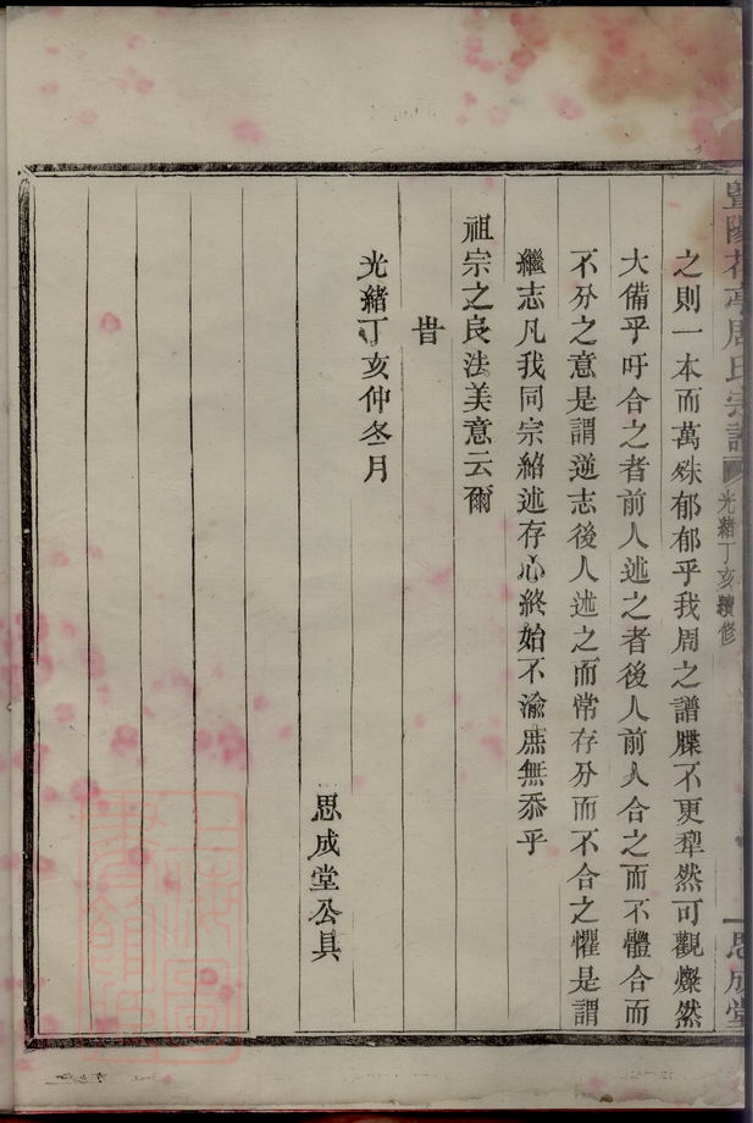 暨陽花亭周氏宗譜 光緒丁亥續修 思成堂
之則一本而萬殊郁郁乎我周之譜牒不更犂然可觀燦然
大備乎吁合之者前人述之者後人前人合之而不體合而
不分之意是謂逆志後人述之而常存分而不合之懼是謂
繼志凡我同宗紹述存心終始不渝庶無忝乎
祖宗之良法美意云爾
旹
光緒丁亥仲冬月
思成堂公具